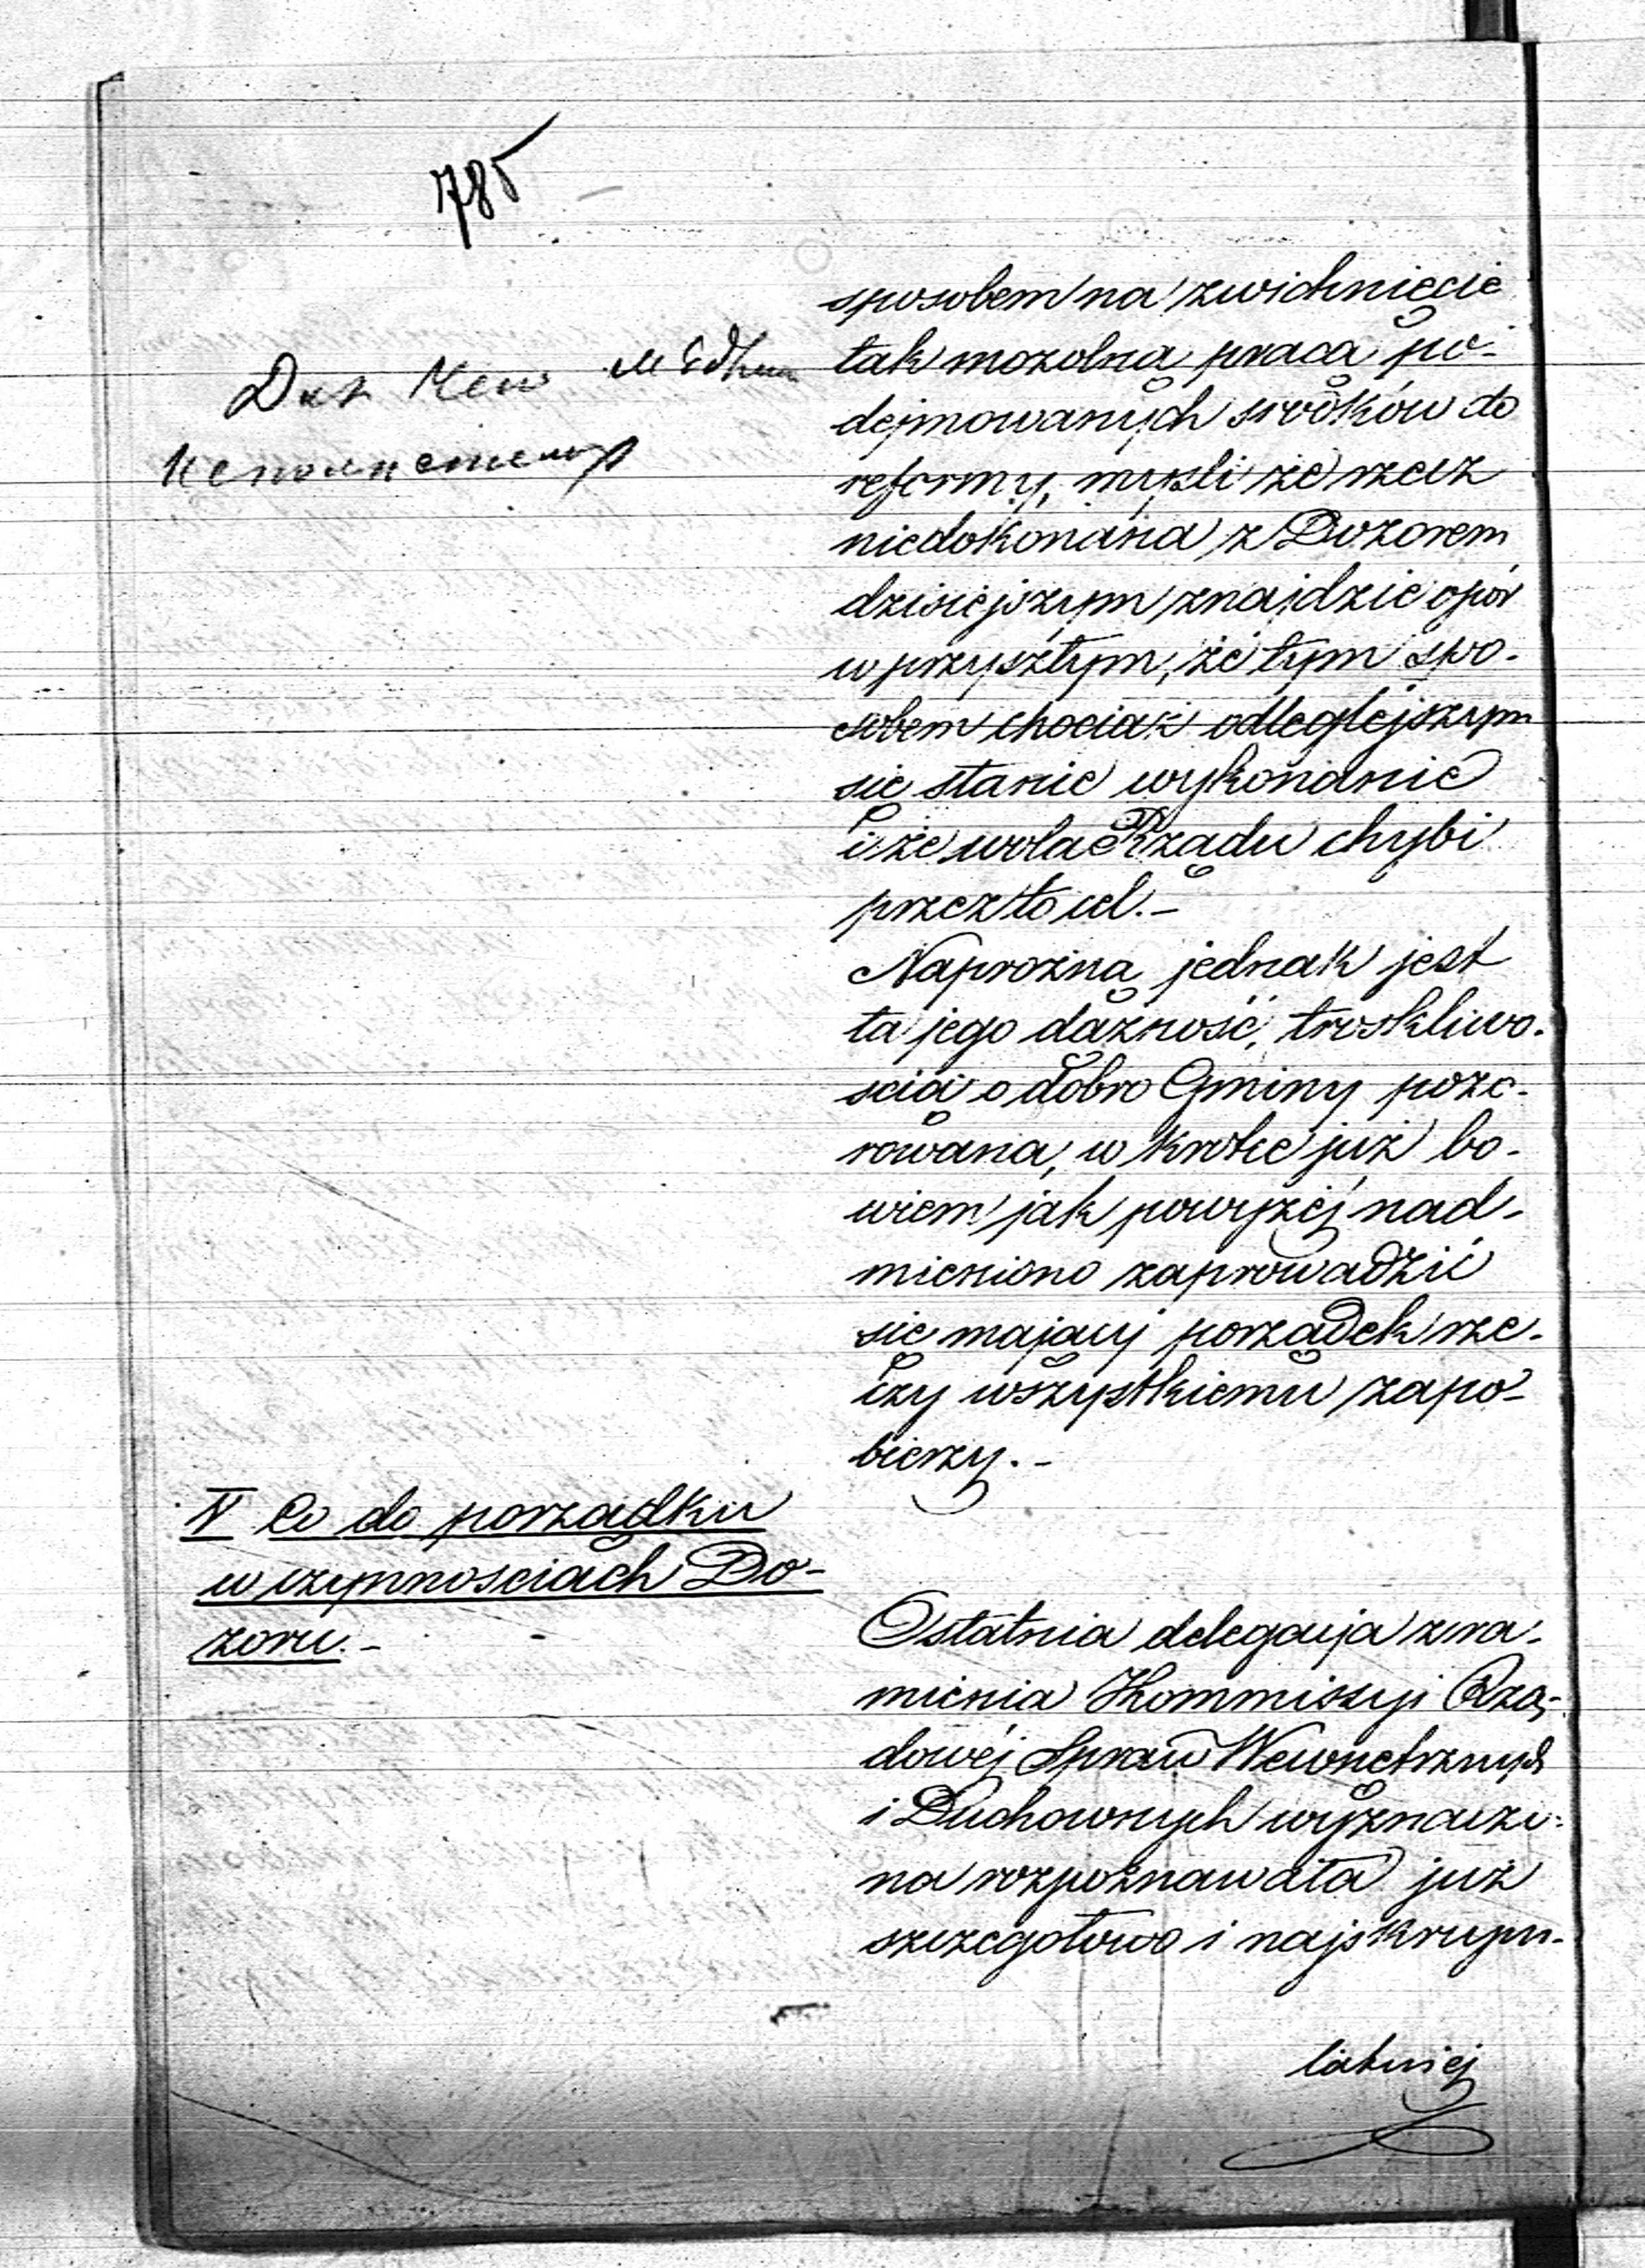 785
sposobem na zwichnięcie
tak mozolną pracą po-
dejmowanych srodków do
reformy, mysli że rzecz
niedokonana z Dozorem
dzisiejszym znajdzie opór
w przyszłym, że tym spo-
sobem chociaż odleglejszym
się stanie wykonanie
i że wola Rządu chybi
przez to cel.-
Naprozną jednak jest
ta jego dążność, troskliwo-
scią o dobro Gminy pozo-
rowana, w krotce już bo-
wiem jak powyżej nad-
mieniono zaprowadzić
się mający porządek rze-
czy wszystkiemu zapo-
bieży.-
IV Co do porządku
w czynnosciach Do-
zoru.-
Ostatnia delegacja z ra-
mienia Kommissyi Rzą-
dowéj Spraw Wewnętrznych
i Duchownych wyznaczo-
na rozpoznawała już
szczegołowo i najskrupu-
latniej